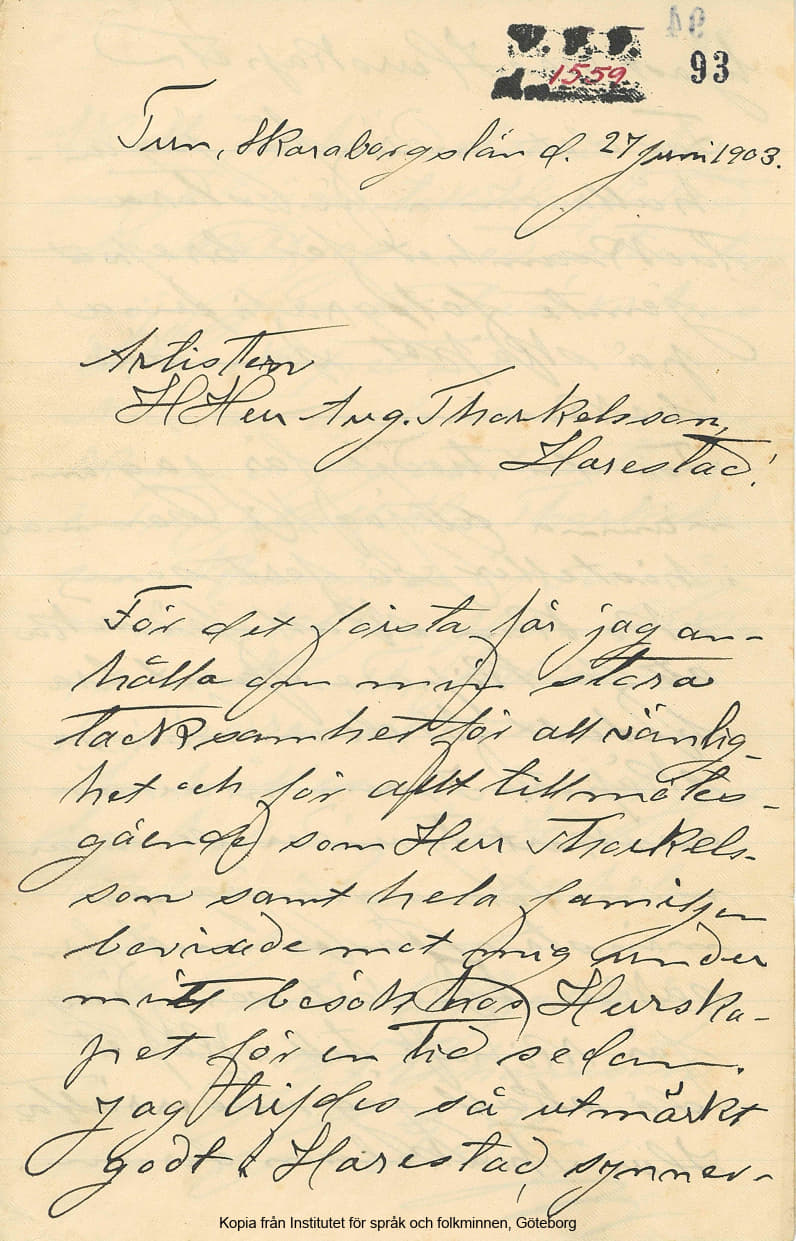 94
V. F. F.
1559
93
Tun, Skaraborgslän d. 27 juni 1903.
Artisten
HHerr Aug. Thorkelsson,
Harestad!
För det första får jag an-
hålla om min stora
tacksamhet för all vänlig-
het och för allt tillmötes-
gående som Herr Thorkels-
son samt hela familjen
bevisade mot mig under
mitt besök hos Herrska-
pet för en tid sedan.
Jag trifdes så utmärkt
godt i Harestad, synner-
Kopia från Institutet för språk och folkminnen, Göteborg